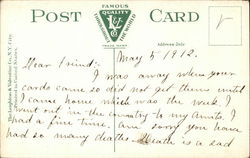 POST CARD
FAMOUS
QUALITY
THROUGHOUT THE WORLD
V & S
TRADE MARK
Address Side
The Leighton & Valentine Co., N.Y. City.
Printed in United States.
May 5 1912.
Dear Friend:-
I was away when your
cards came so did not get them until
I came home which was the week. I
went out in the country to my Aunts. I
had a fine time. am sorry you have
had so many deaths. Death is a sad